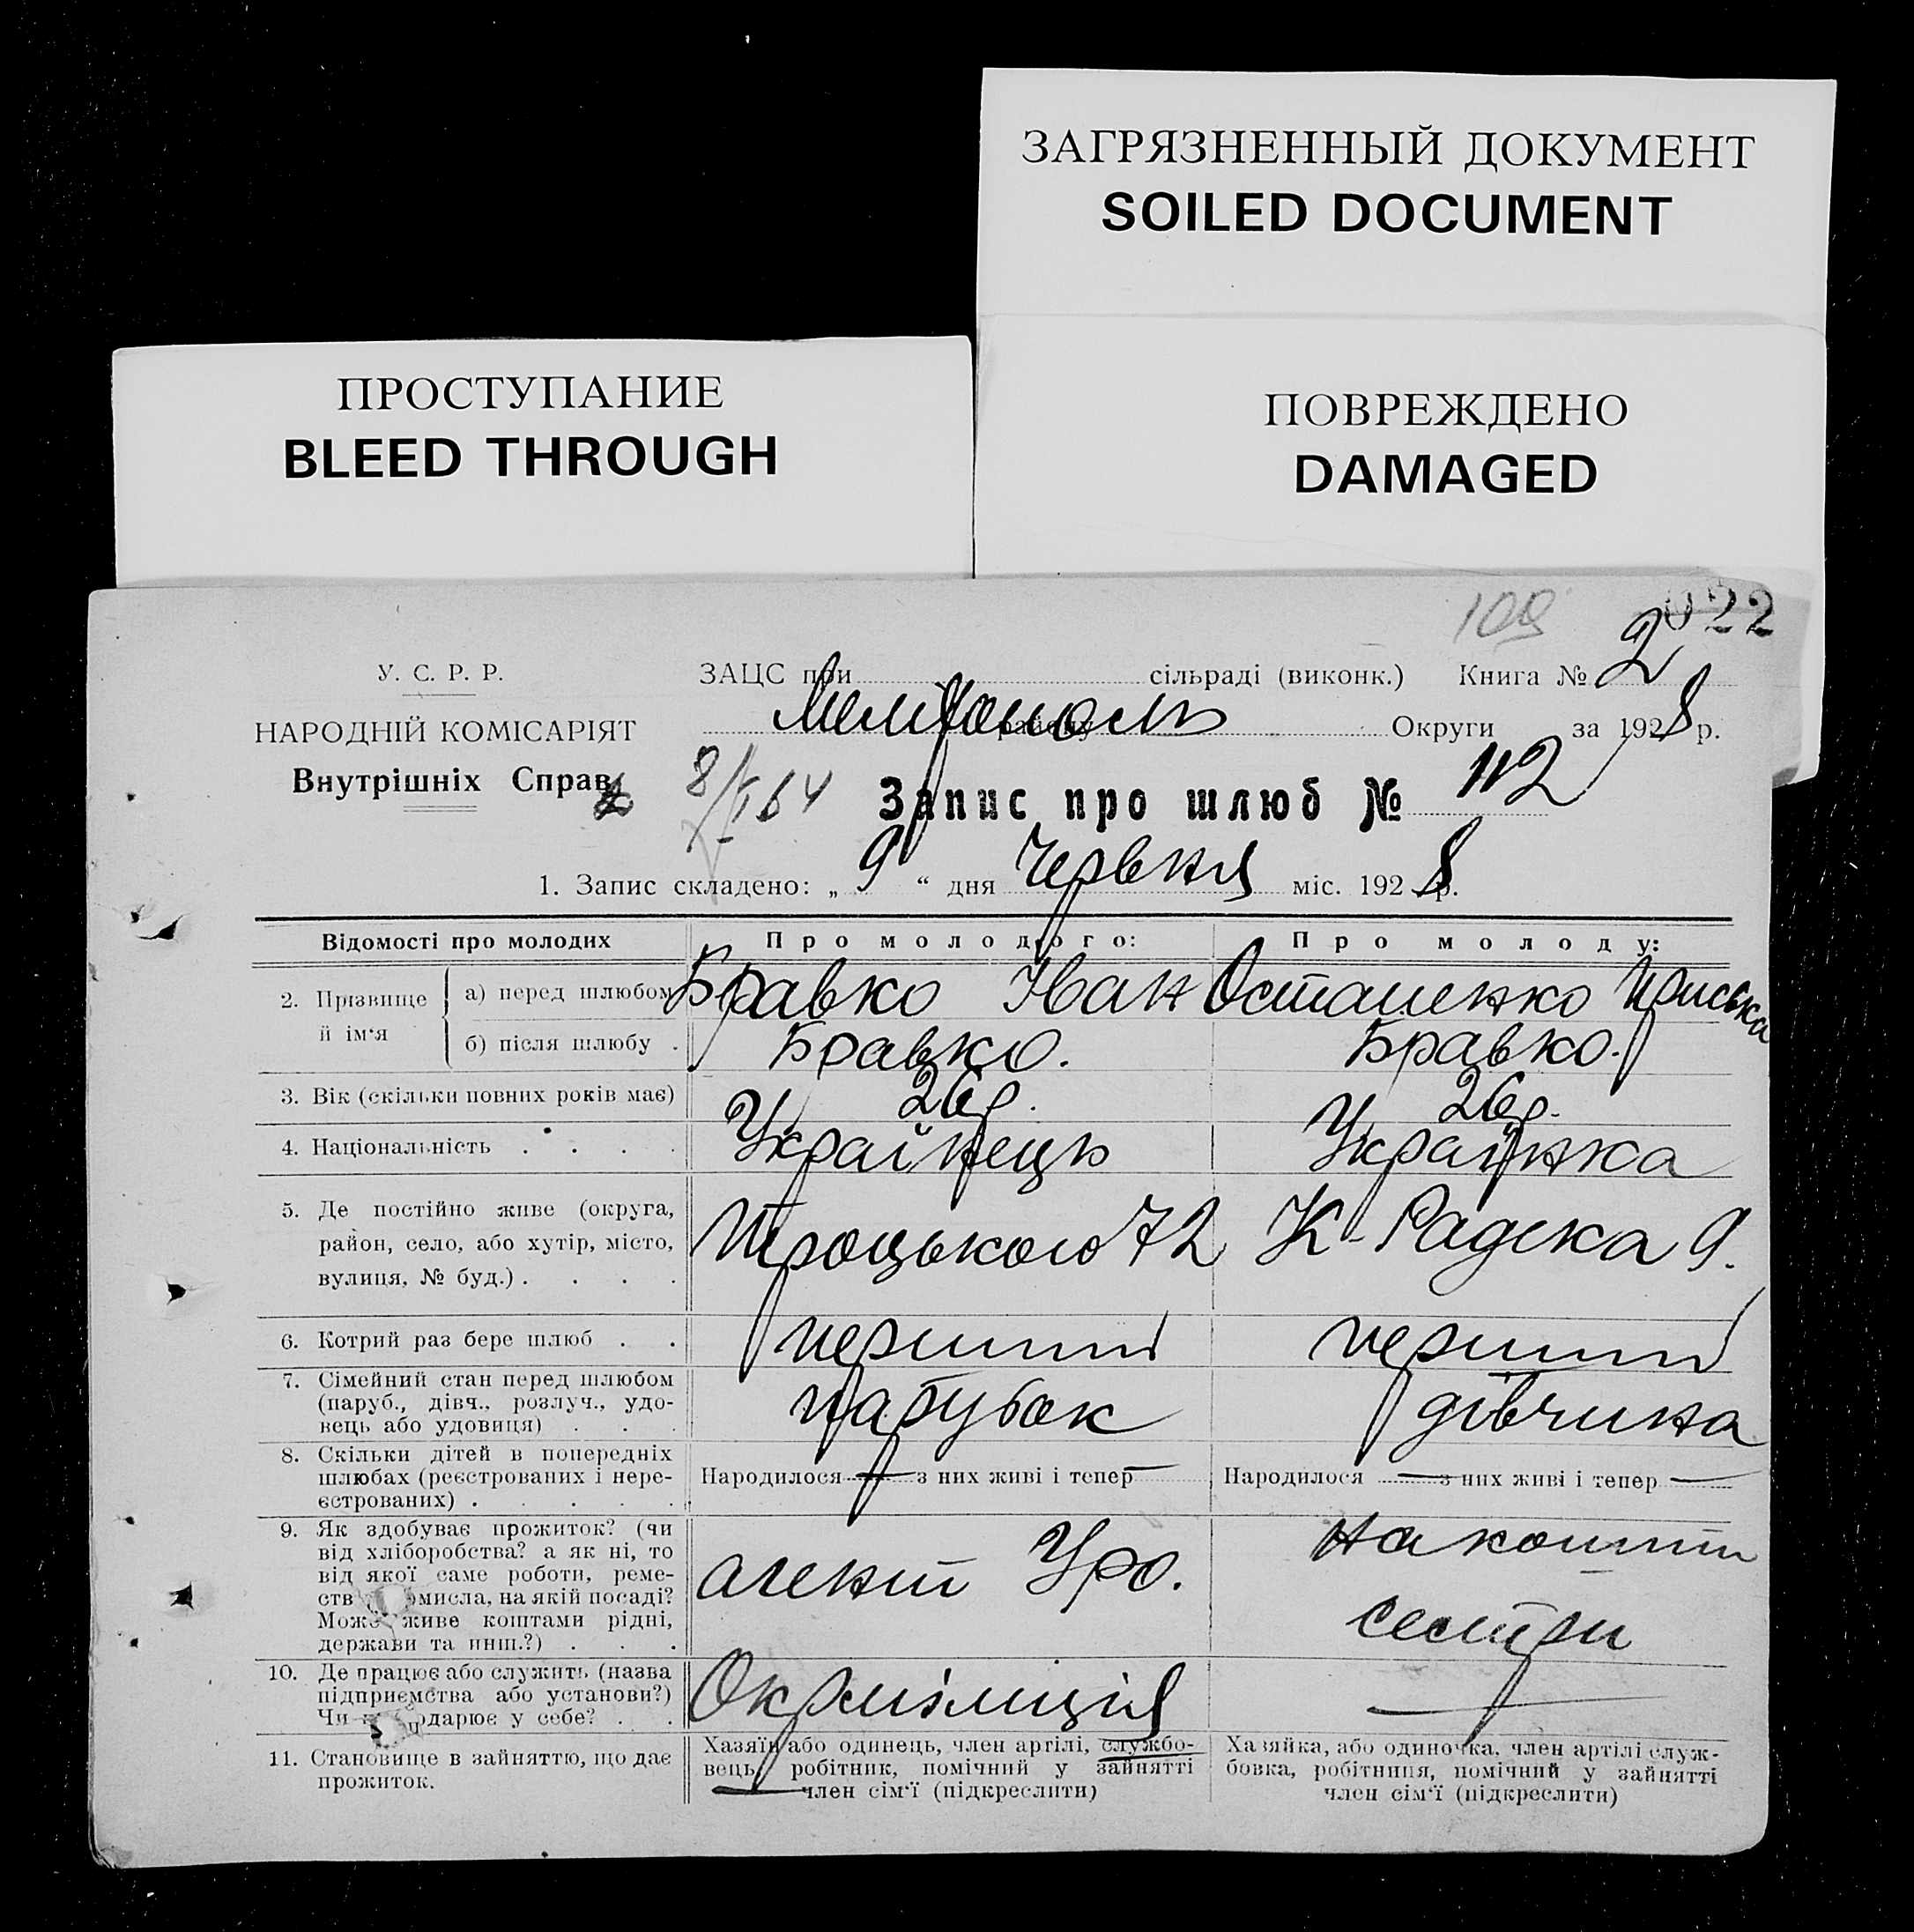 ЗАГРЯЗНЕННЫЙ ДОКУМЕНТ
SOILED DOCUMENT
ПРОСТУПАНИЕ
BLEED THROUGH
ПОВРЕЖДЕНО
DAMAGED
109
22
У. С. Р. Р.
ЗАЦС при сільраді (виконк.) Книга № 2
НАРОДНІЙ КОМІСАРІЯТ
Мелітополь району Округи за 1928 р.
Внутрішніх Справ
Запис про шлюб № 112
1. Запис складено: „ 9 “ дня Червня міс. 1928 р.
Відомості про молодих Про молодого: Про молоду:
2. Прізвище й ім‘я
а) перед шлюбом Бравко Іван Остапенко Приська
б) після шлюбу . Бравко. Бравко.
3. Вік (скільки повних років має) 26 р. 26 р.
4. Національність . . . . Українець Українка
5. Де постійно живе (округа,
район, село, або хутір, місто,
вулиця, № буд.) . . . .
Троцького 72 К-Радека 9.
6. Котрий раз бере шлюб . . перший перший
7. Сімейний стан перед шлюбом
(паруб., дівч., розлуч., удо-
вець або удовиця) . . .
парубок дівчина
8. Скільки дітей в попередніх
шлюбах (реєстрованих і нере-
єстрованих) . . . . .
Народилося — з них живі і тепер — Народилося — з них живі і тепер —
9. Як здобуває прожиток? (чи
від хліборобства? а як ні, то
від якої саме роботи, реме-
ств мисла, на якій посаді?
Може живе коштами рідні,
держави та инш.?) . . .
агент Уро.
на кошти
сестри
10. Де працює або служить (назва
підприємства або установи?)
Чи одарює у себе? . .
Окрміліція —
11. Становище в зайняттю, що дає
прожиток.
Хазяїн або одинець, член артілі, службо-
вець, робітник, помічний у зайнятті
член сім‘ї (підкреслити)
Хазяйка, або одиночка, член артілі служ-
бовка, робітниця, помічний у зайнятті
член сім‘ї (підкреслити)